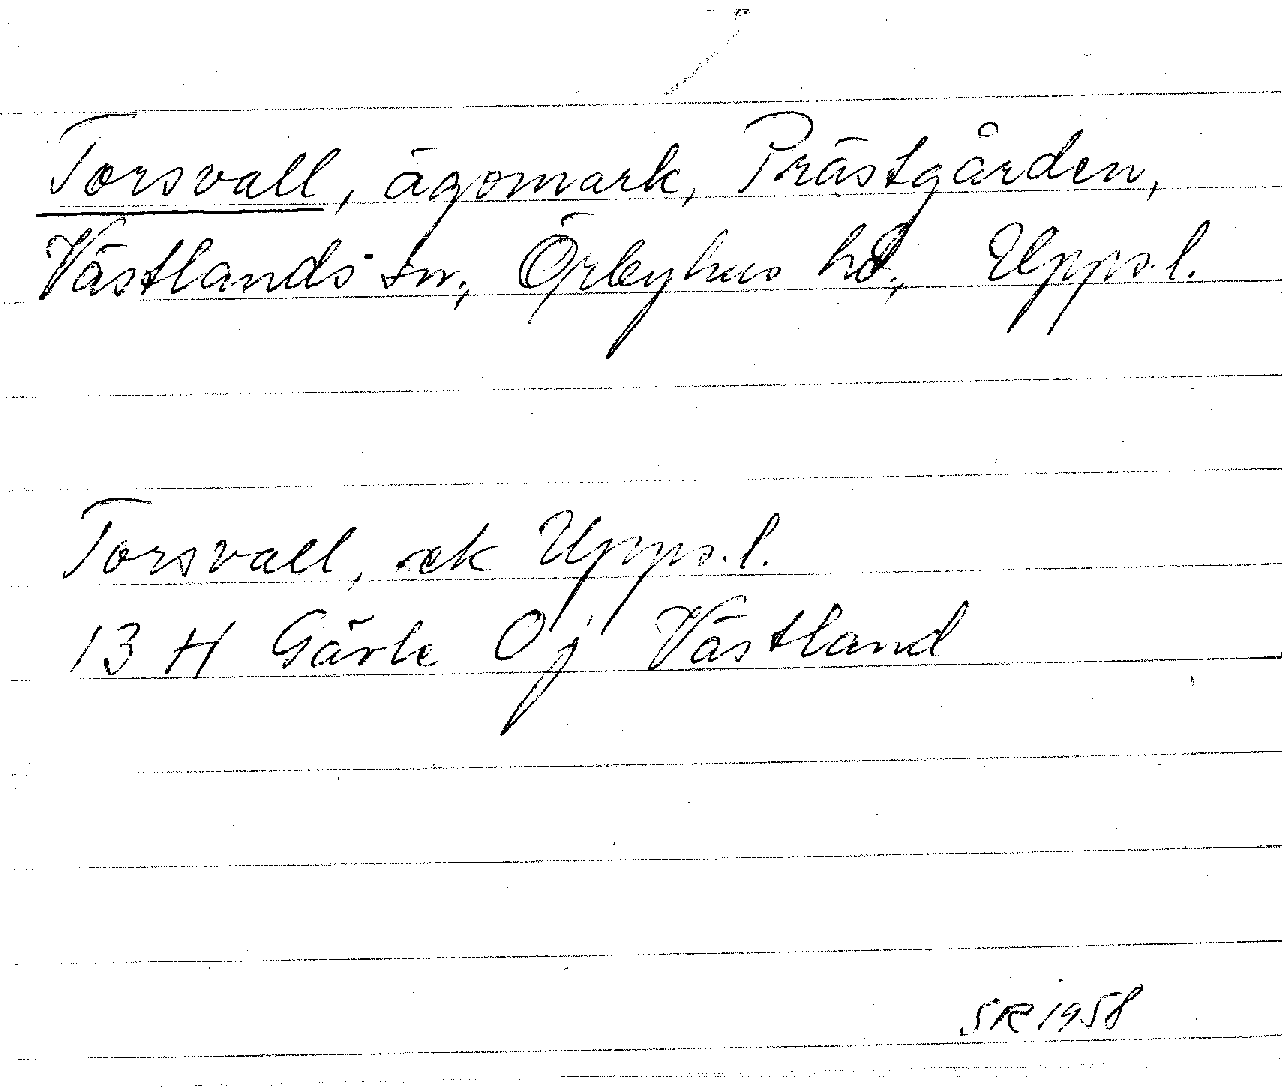 Torsvall, ägomark, Prästgården,
Västlands sn, Örbyhus hd, Uppsl.
Torsvall, ek Uppsl.
13 H Gävle 0j Västland
SR 1958